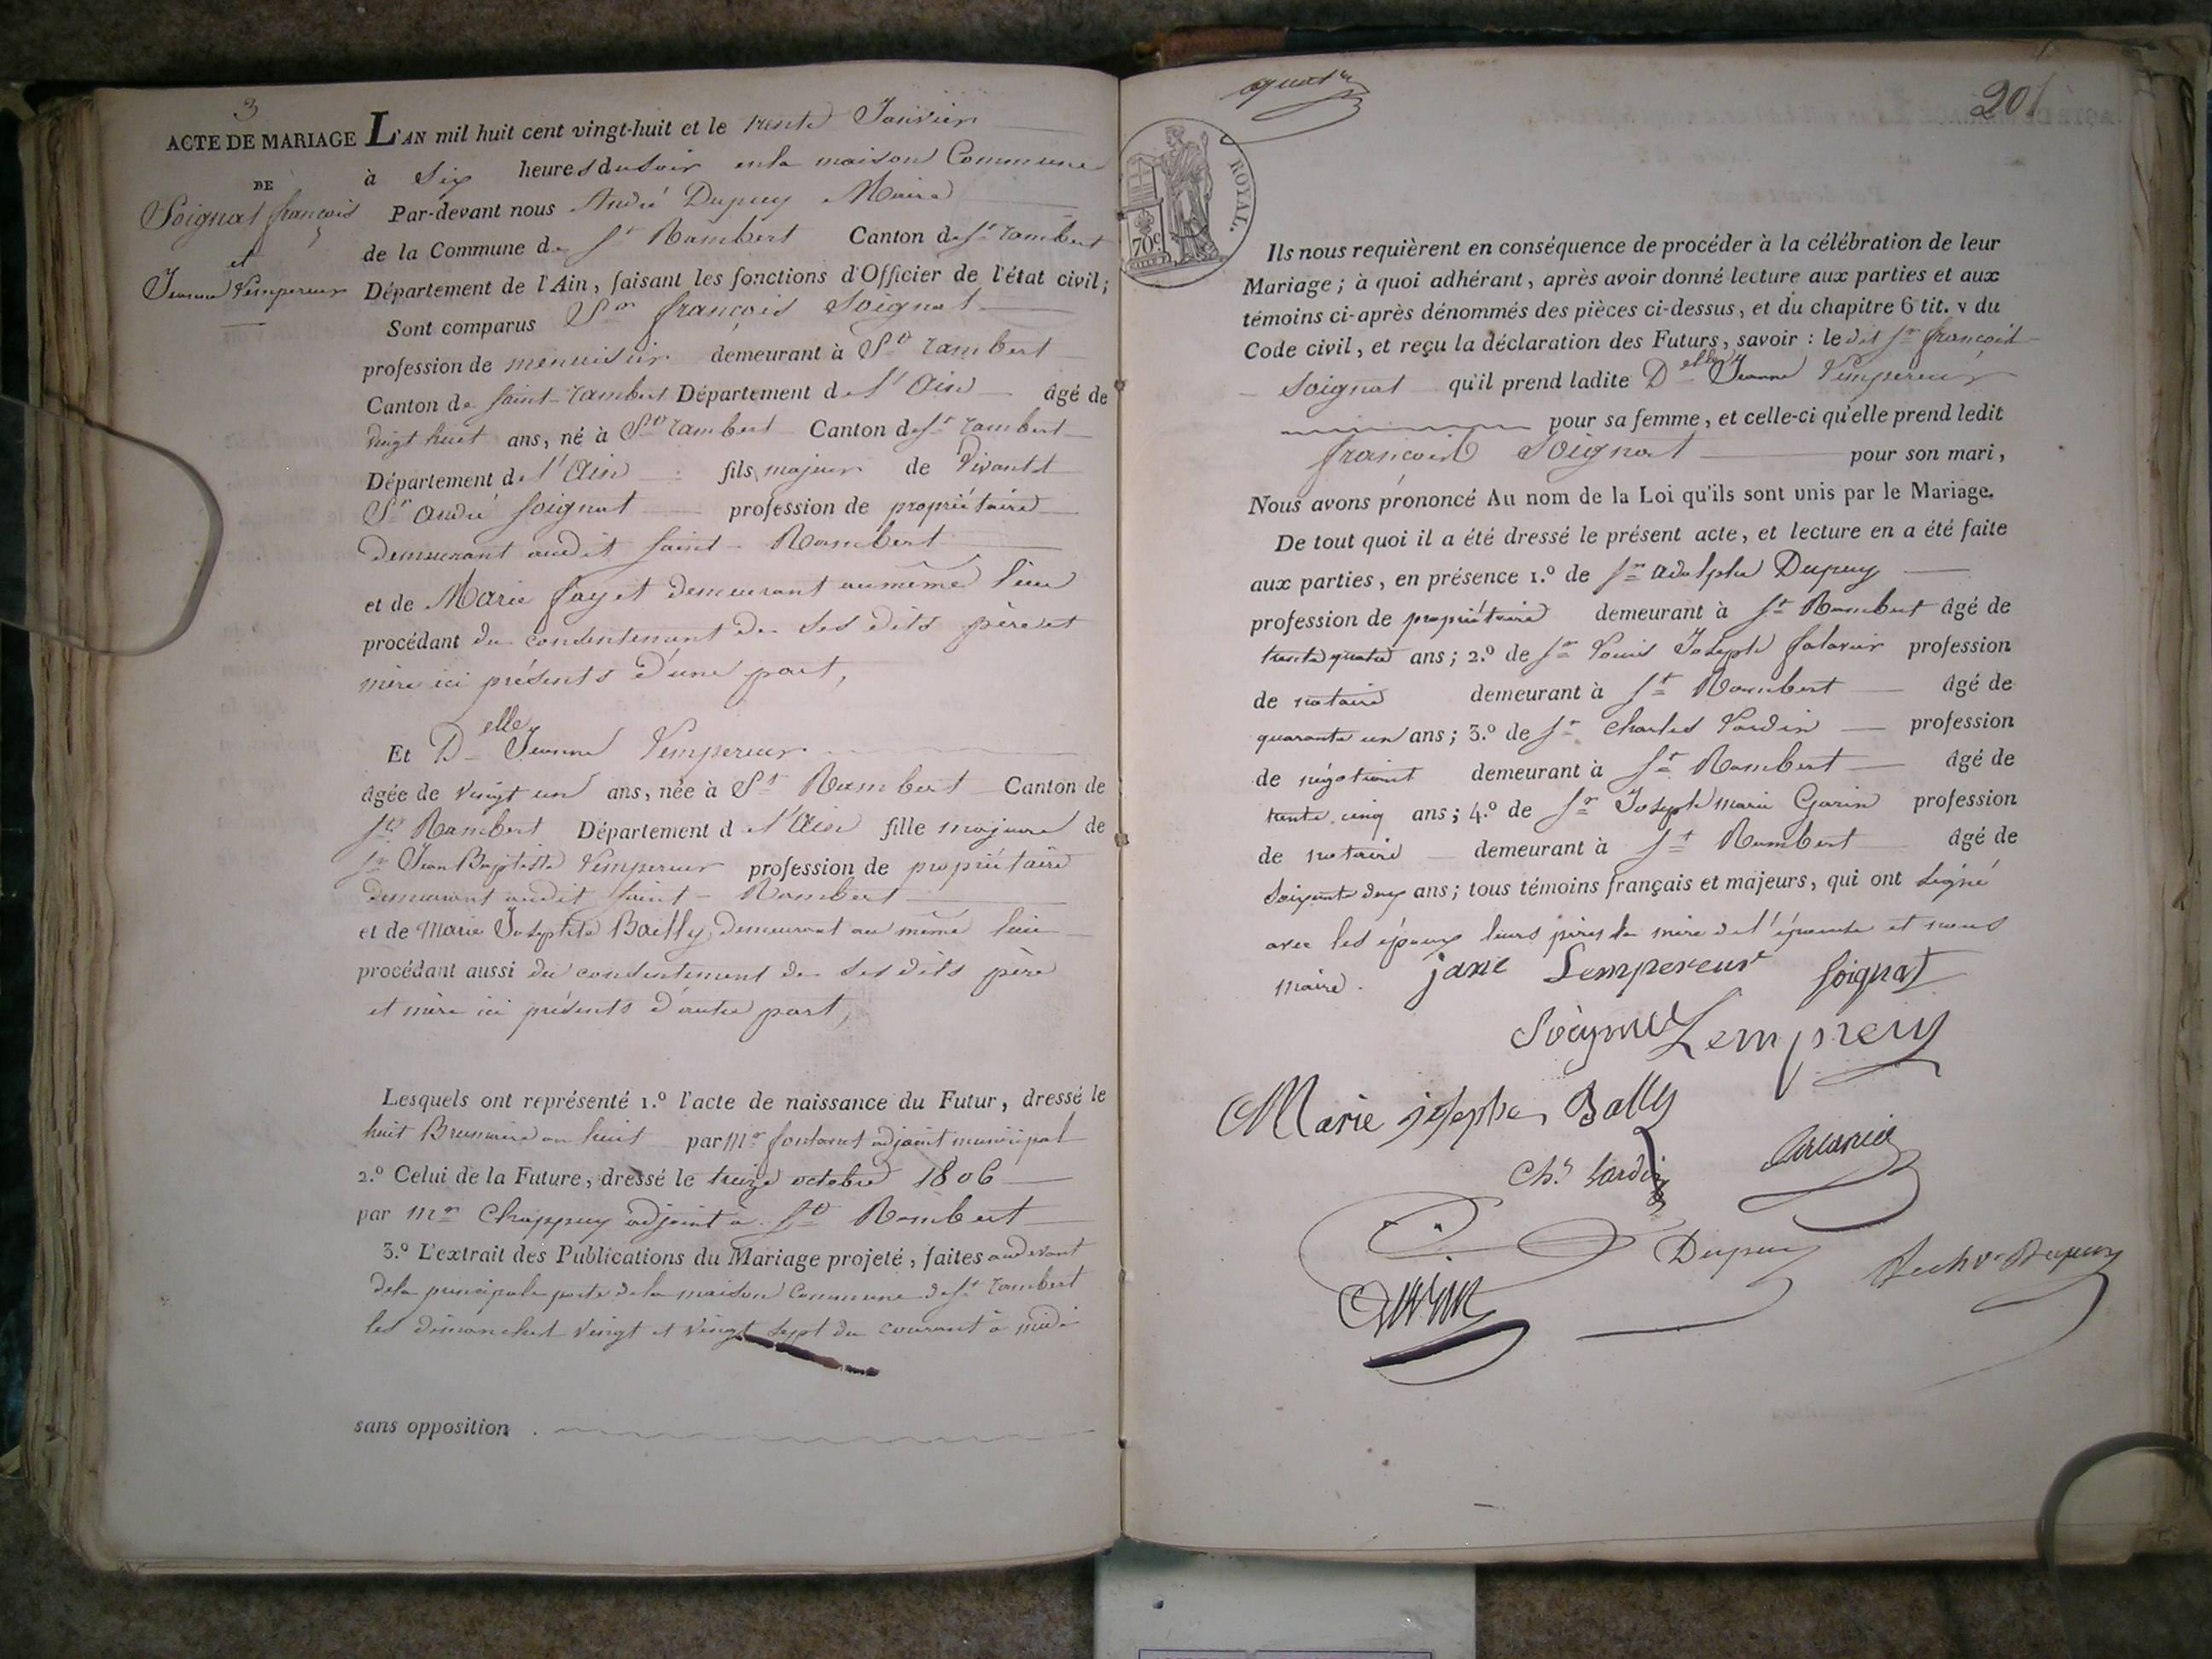 3
ACTE DE MARIAGE
DE
Soignat françois
et
Jeanne Lempereur
L'AN mil huit cent vingt-huit et le trente Janvier
à Six heures du soir en la maison Commune
Par-devant nous André Dupuy Maire
de la Commune de St Rambert Canton de St rambert
Département de l'Ain, faisant les fonctions d'Officier de l'état civil;
Sont comparus Sr françois Soignat
profession de menuisier demeurant à St rambert
Canton de saint-rambert Département de l'Ain âgé de
vingt huit ans, né à St rambert Canton de St rambert
Département de l'Ain fils majeur de Vivants
Sr andré Soignat profession de propriétaire
demeurant audit saint-Rambert
et de Marie fayet demeurant au même lieu
procédant du consentement de ses dits père et
mère ici présents d'une part,
Et Delle Jeanne Lempereur
âgée de vingt un ans, née à St Rambert Canton de
St Rambert Département de l'Ain fille majeure de
Sr Jean Baptiste Lempereur profession de propriétaire
demeurant audit saint-Rambert
et de Marie Josephte Bailly, demeurant au même lieu
procédant aussi du consentement de ses dits père
et mère ici présents d'autre part,
Lesquels ont représenté 1.º l'acte de naissance du Futur, dressé le
huit Brumaire an huit par Mr fontanet adjoint municipal
2.º Celui de la Future, dressé le treize octobre 1806
par Mr Chappuy adjoint à St Rambert
3.º L'extrait des Publications du Mariage projeté, faites au devant
de la principale porte de la maison Commune de St rambert
les dimanches vingt et vingt sept du courant à midi
sans opposition.
201
ROYAL.
70c
Ils nous requièrent en conséquence de procéder à la célébration de leur
Mariage; à quoi adhérant, après avoir donné lecture aux parties et aux
témoins ci-après dénommés des pièces ci-dessus, et du chapitre 6 tit. v du
Code civil, et reçu la déclaration des Futurs, savoir : le dit Sr françois
Soignat qu'il prend ladite Delle Jeanne Lempereur
pour sa femme, et celle-ci qu'elle prend ledit
françois Soignat pour son mari,
Nous avons prononcé Au nom de la Loi qu'ils sont unis par le Mariage.
De tout quoi il a été dressé le présent acte, et lecture en a été faite
aux parties, en présence 1.º de Sr adolphe Dupuy
profession de propriétaire demeurant à St Rambert âgé de
trente quatre ans; 2.º de Sr Louis Joseph profession
de notaire demeurant à St Rambert âgé de
quarante un ans; 3.º de Sr Charles Lardin profession
de négotiant demeurant à St Rambert âgé de
trente cinq ans; 4.º de Sr Joseph marie Garin profession
de notaire demeurant à St Rambert âgé de
soixante deux ans; tous témoins français et majeurs, qui ont signé
avec les époux leurs pères la mère de l'épouse et nous
maire.
jane Lempereur Soignat
Marie josephe Bally
Ch.s Lardin
Dupuy